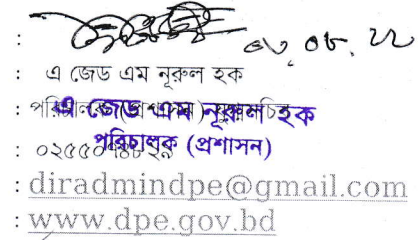 : ০৮. ২২
: এ জেড এম নূরুল হক
: পরিচালক (প্রশাসন)
এ জেড এম নূরুল হক
পরিচালক (প্রশাসন)
:
: diradmindpe@gmail.com
: www.dpe.gov.bd